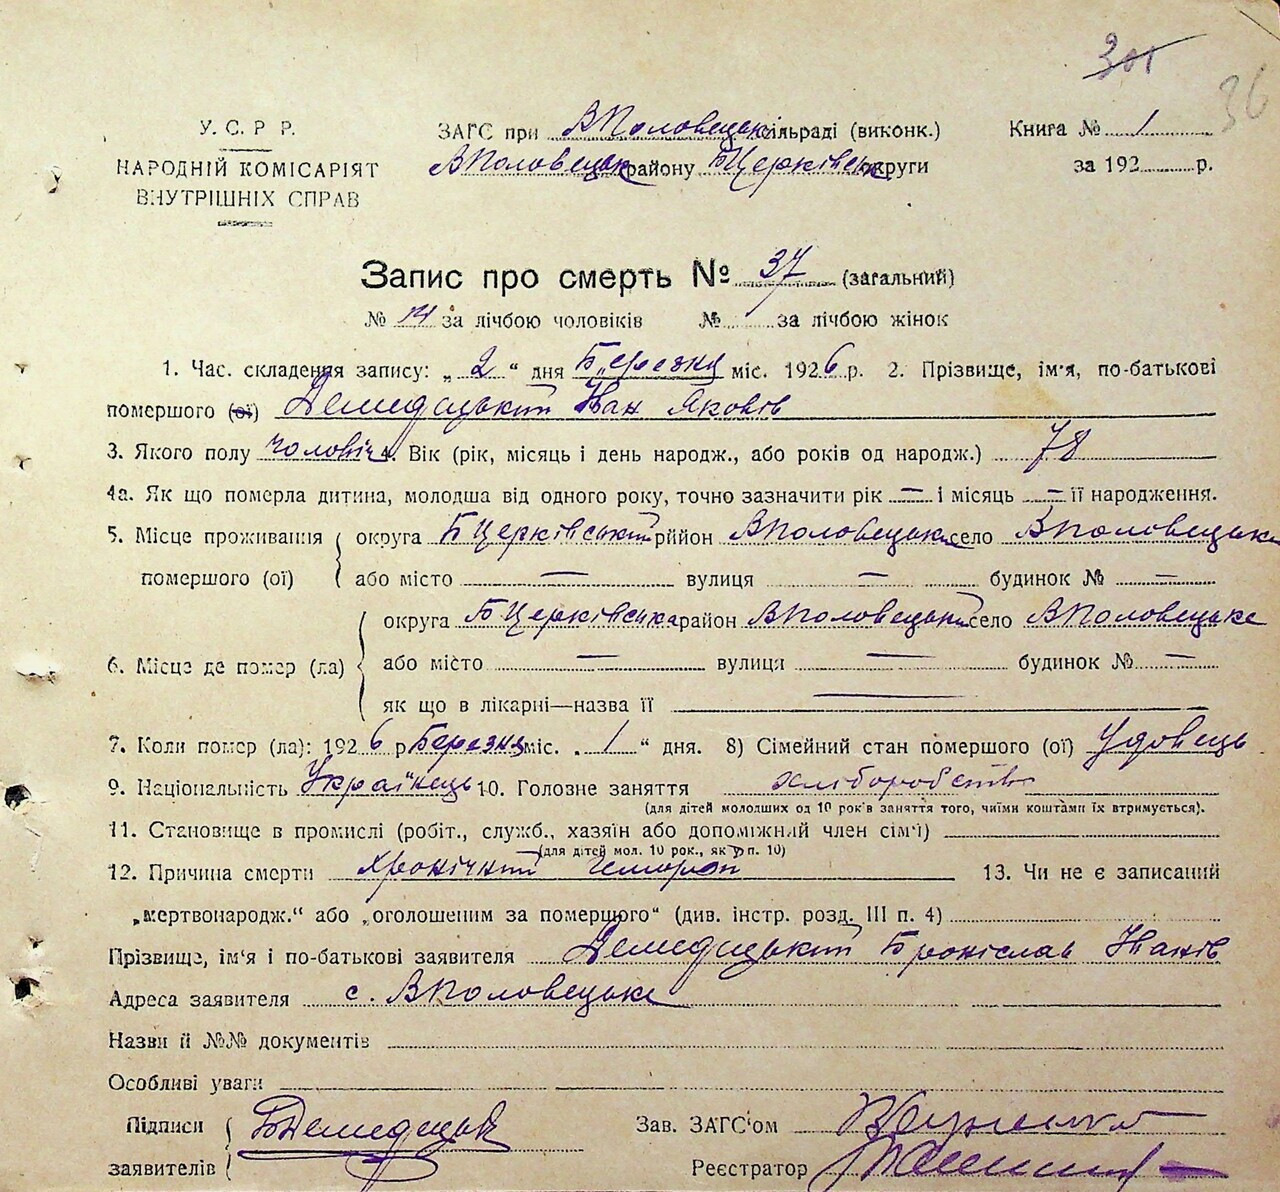 301
36
У. С. Р. Р.
НАРОДНІЙ КОМІСАРІЯТ
ВНУТРІШНІХ СПРАВ
ЗАГС при ВПоловецькій сільраді (виконк.)
ВПоловецьк району БЦерківськ округи
Книга № 1
за 192 р.
Запис про смерть № 37 (загальний)
№ 14 за лічбою чоловіків № за лічбою жінок
1. Час. складення запису: „ 2 “ дня Березня міс. 1926 р. 2. Прізвище, ім'я, по-батькові
помершого (ої) Демедицький Іван Яковів
3. Якого полу чоловіч. 4. Вік (рік, місяць і день народж., або років од народж.) 78
4а. Як що померла дитина, молодша від одного року, точно зазначити рік — і місяць — її народження.
5. Місце проживання помершого (ої) округа БЦерківський район ВПоловецьк село ВПоловецьке
або місто — вулиця — будинок № —
6. Місце де помер (ла) округа БЦерківська район ВПоловецький село ВПоловецьке
або місто — вулиця — будинок № —
як що в лікарні—назва її —
7. Коли помер (ла): 1926 р. Березня міс. „ 1 “ дня. 8) Сімейний стан помершого (ої) Удовець
9. Національність Українець 10. Головне заняття хліборобство
(для дітей молодших од 10 років заняття того, чиїми коштами їх втримується).
11. Становище в промислі (робіт., служб., хазяїн або допоміжний член сім'ї)
(для дітей мол. 10 рок., як у п. 10)
12. Причина смерти Хронічний гемороп 13. Чи не є записаний
„мертвонародж.“ або „оголошеним за помершого“ (див. інстр. розд. III п. 4)
Прізвище, ім'я і по-батькові заявителя Демедицький Броніслав Іванів
Адреса заявителя с. ВПоловецьке
Назви й №№ документів
Особливі уваги
Підписи заявителів БДемедицький
Зав. ЗАГС'ом
Реєстратор